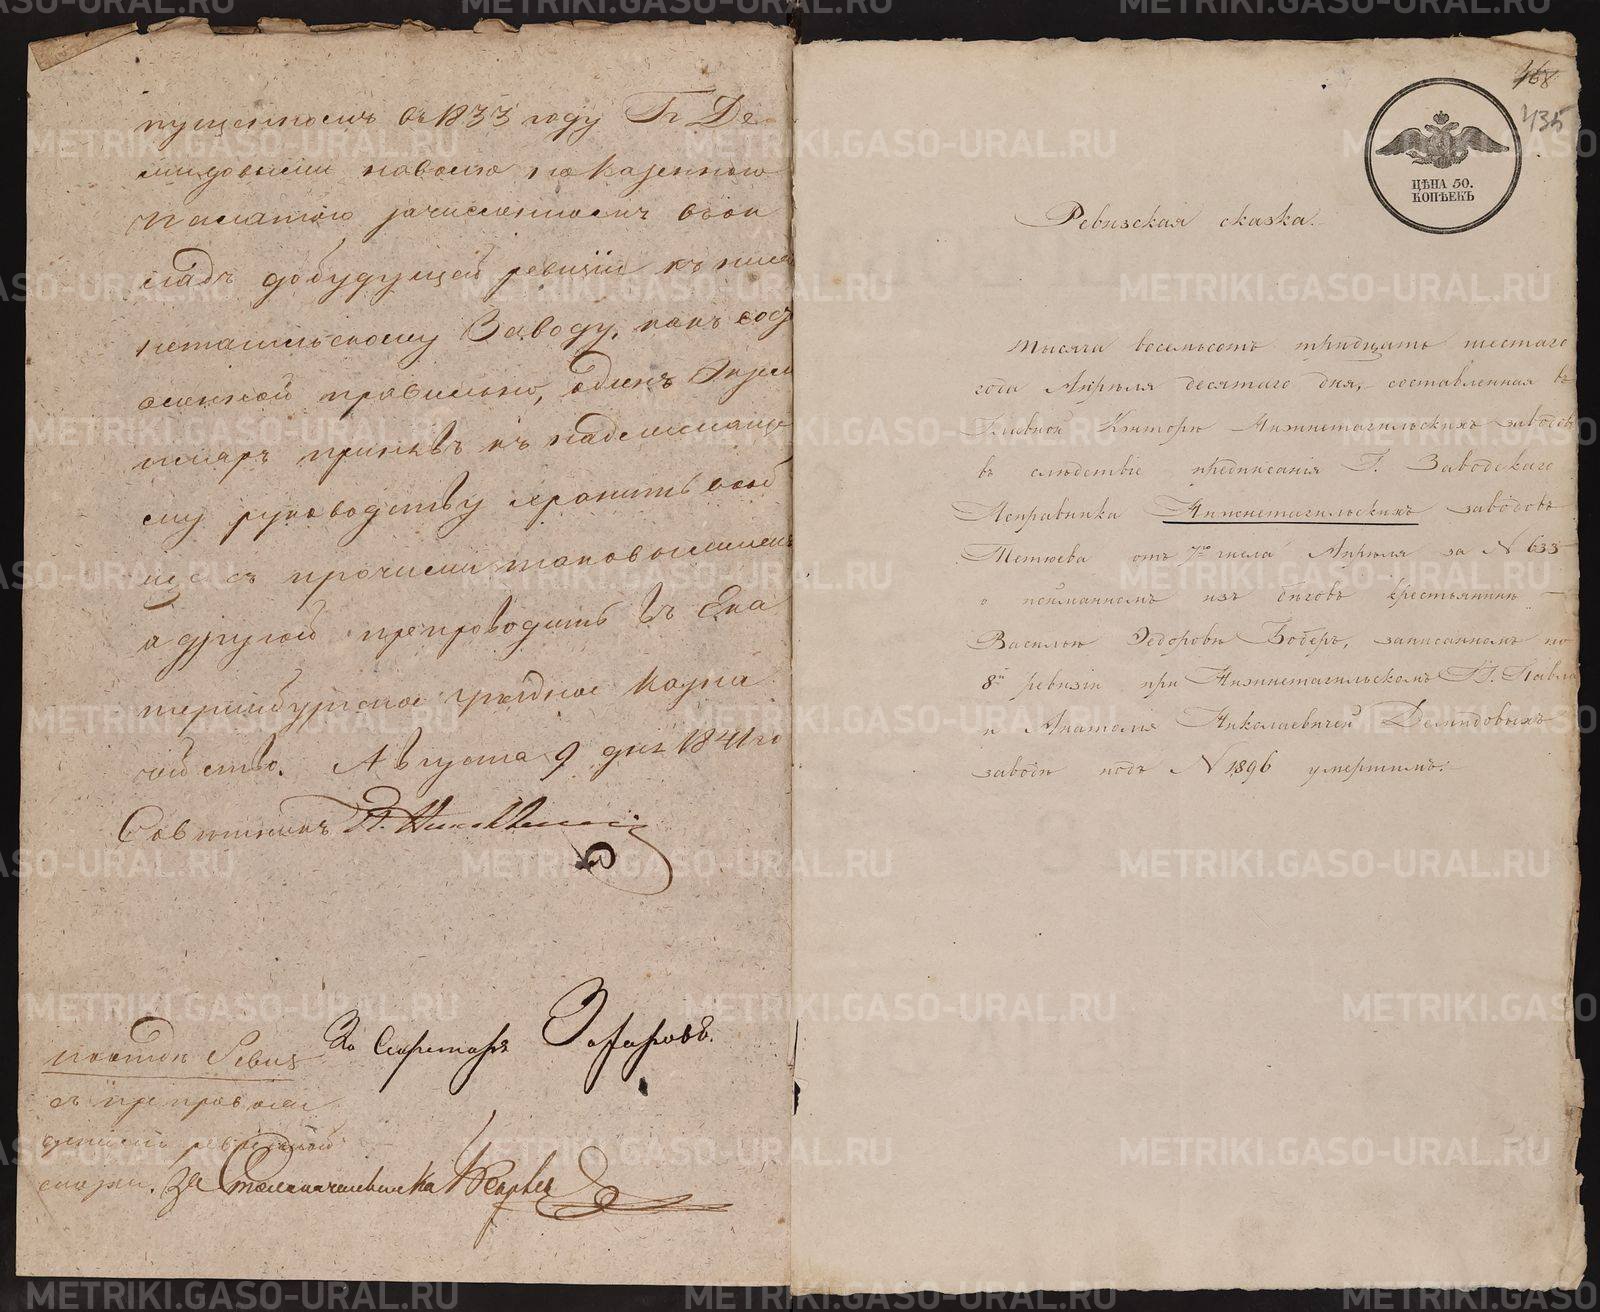 пущенномъ въ 1833 году Гг. Де-
мидовыми на волю и Казенною
Палатою зачисленномъ въ ок
ладъ до будущей ревизіи къ Ниж
нетагильскому Заводу, какъ сос
тавленной правильно, одинъ Экзем
пляръ принявъ къ надлежаще
му руководству хранить вооб
ще съ прочими таковыми
а другой препроводить въ Ека
теринбургское Уездное Казна
чейство. Августа 9 дня 1841 го
Советникъ
За Секретаря Захаровъ.
съ препровож
деніемъ ревизской
сказки. За Столоначальника
468
435
ЦѢНА 50.
КОПѢЕКЪ
Ревизская сказка.
Тысяча восемьсотъ тридцать шестаго
года Апреля десятаго дня, составленная въ
Главной Канторе Нижнетагильскихъ заводовъ
въ следствіе предписанія Г. Заводскаго
Исправника Нижнетагильскихъ заводовъ
Метюева отъ 7го числа Апреля за N 633
о пойманномъ изъ беговъ крестьянине
Василье Федорове Бобере, записанномъ по
8й ревизіи при Нижнетагильскомъ Гг. Павла
и Анатолія Николаевичей Демидовыхъ
заводе подъ N 1896 умершимъ.
METRIKI.GASO-URAL.RU